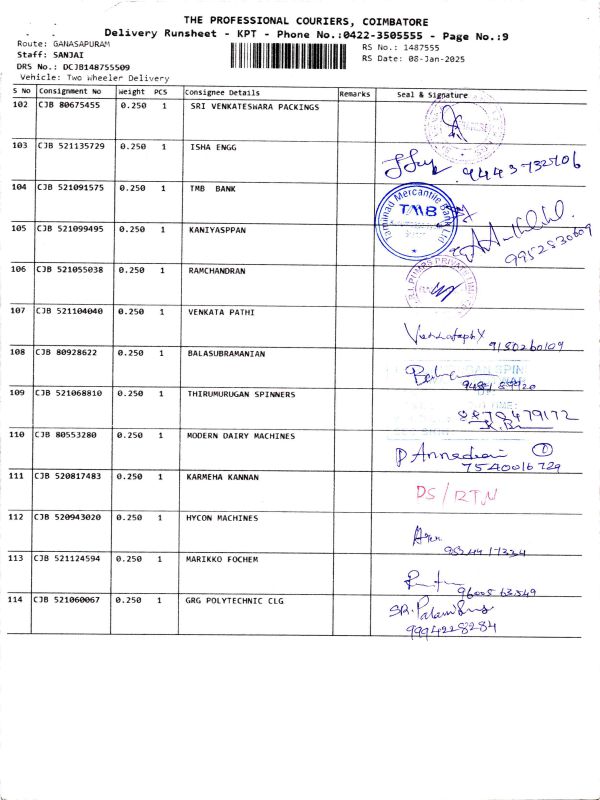 THE PROFESSIONAL COURIERS, COIMBATORE
Delivery Runsheet - KPT - Phone No.:0422-3505555 - Page No.:9
Route: GANASAPURAM
RS No.: 1487555
Staff: SANJAI
RS Date: 08-Jan-2025
DRS No.: DCJB148755509
Vehicle: Two Wheeler Delivery
S No Consignment No Weight PCS Consignee Details Remarks Seal & Signature
102 CJB 80675455 0.250 1 SRI VENKATESWARA PACKINGS
103 CJB 521135729 0.250 1 ISHA ENGG
104 CJB 521091575 0.250 1 TMB BANK
Tamilnad Mercantile Bank Ltd
TMB
105 CJB 521099495 0.250 1 KANIYASPPAN
9952530609
106 CJB 521055038 0.250 1 RAMCHANDRAN
107 CJB 521104040 0.250 1 VENKATA PATHI
9180260109
108 CJB 80928622 0.250 1 BALASUBRAMANIAN
109 CJB 521068810 0.250 1 THIRUMURUGAN SPINNERS
110 CJB 80553280 0.250 1 MODERN DAIRY MACHINES
7540016729
111 CJB 520817483 0.250 1 KARMEHA KANNAN
DS/RTN
112 CJB 520943020 0.250 1 HYCON MACHINES
113 CJB 521124594 0.250 1 MARIKKO FOCHEM
9600563549
114 CJB 521060067 0.250 1 GRG POLYTECHNIC CLG
9994228284